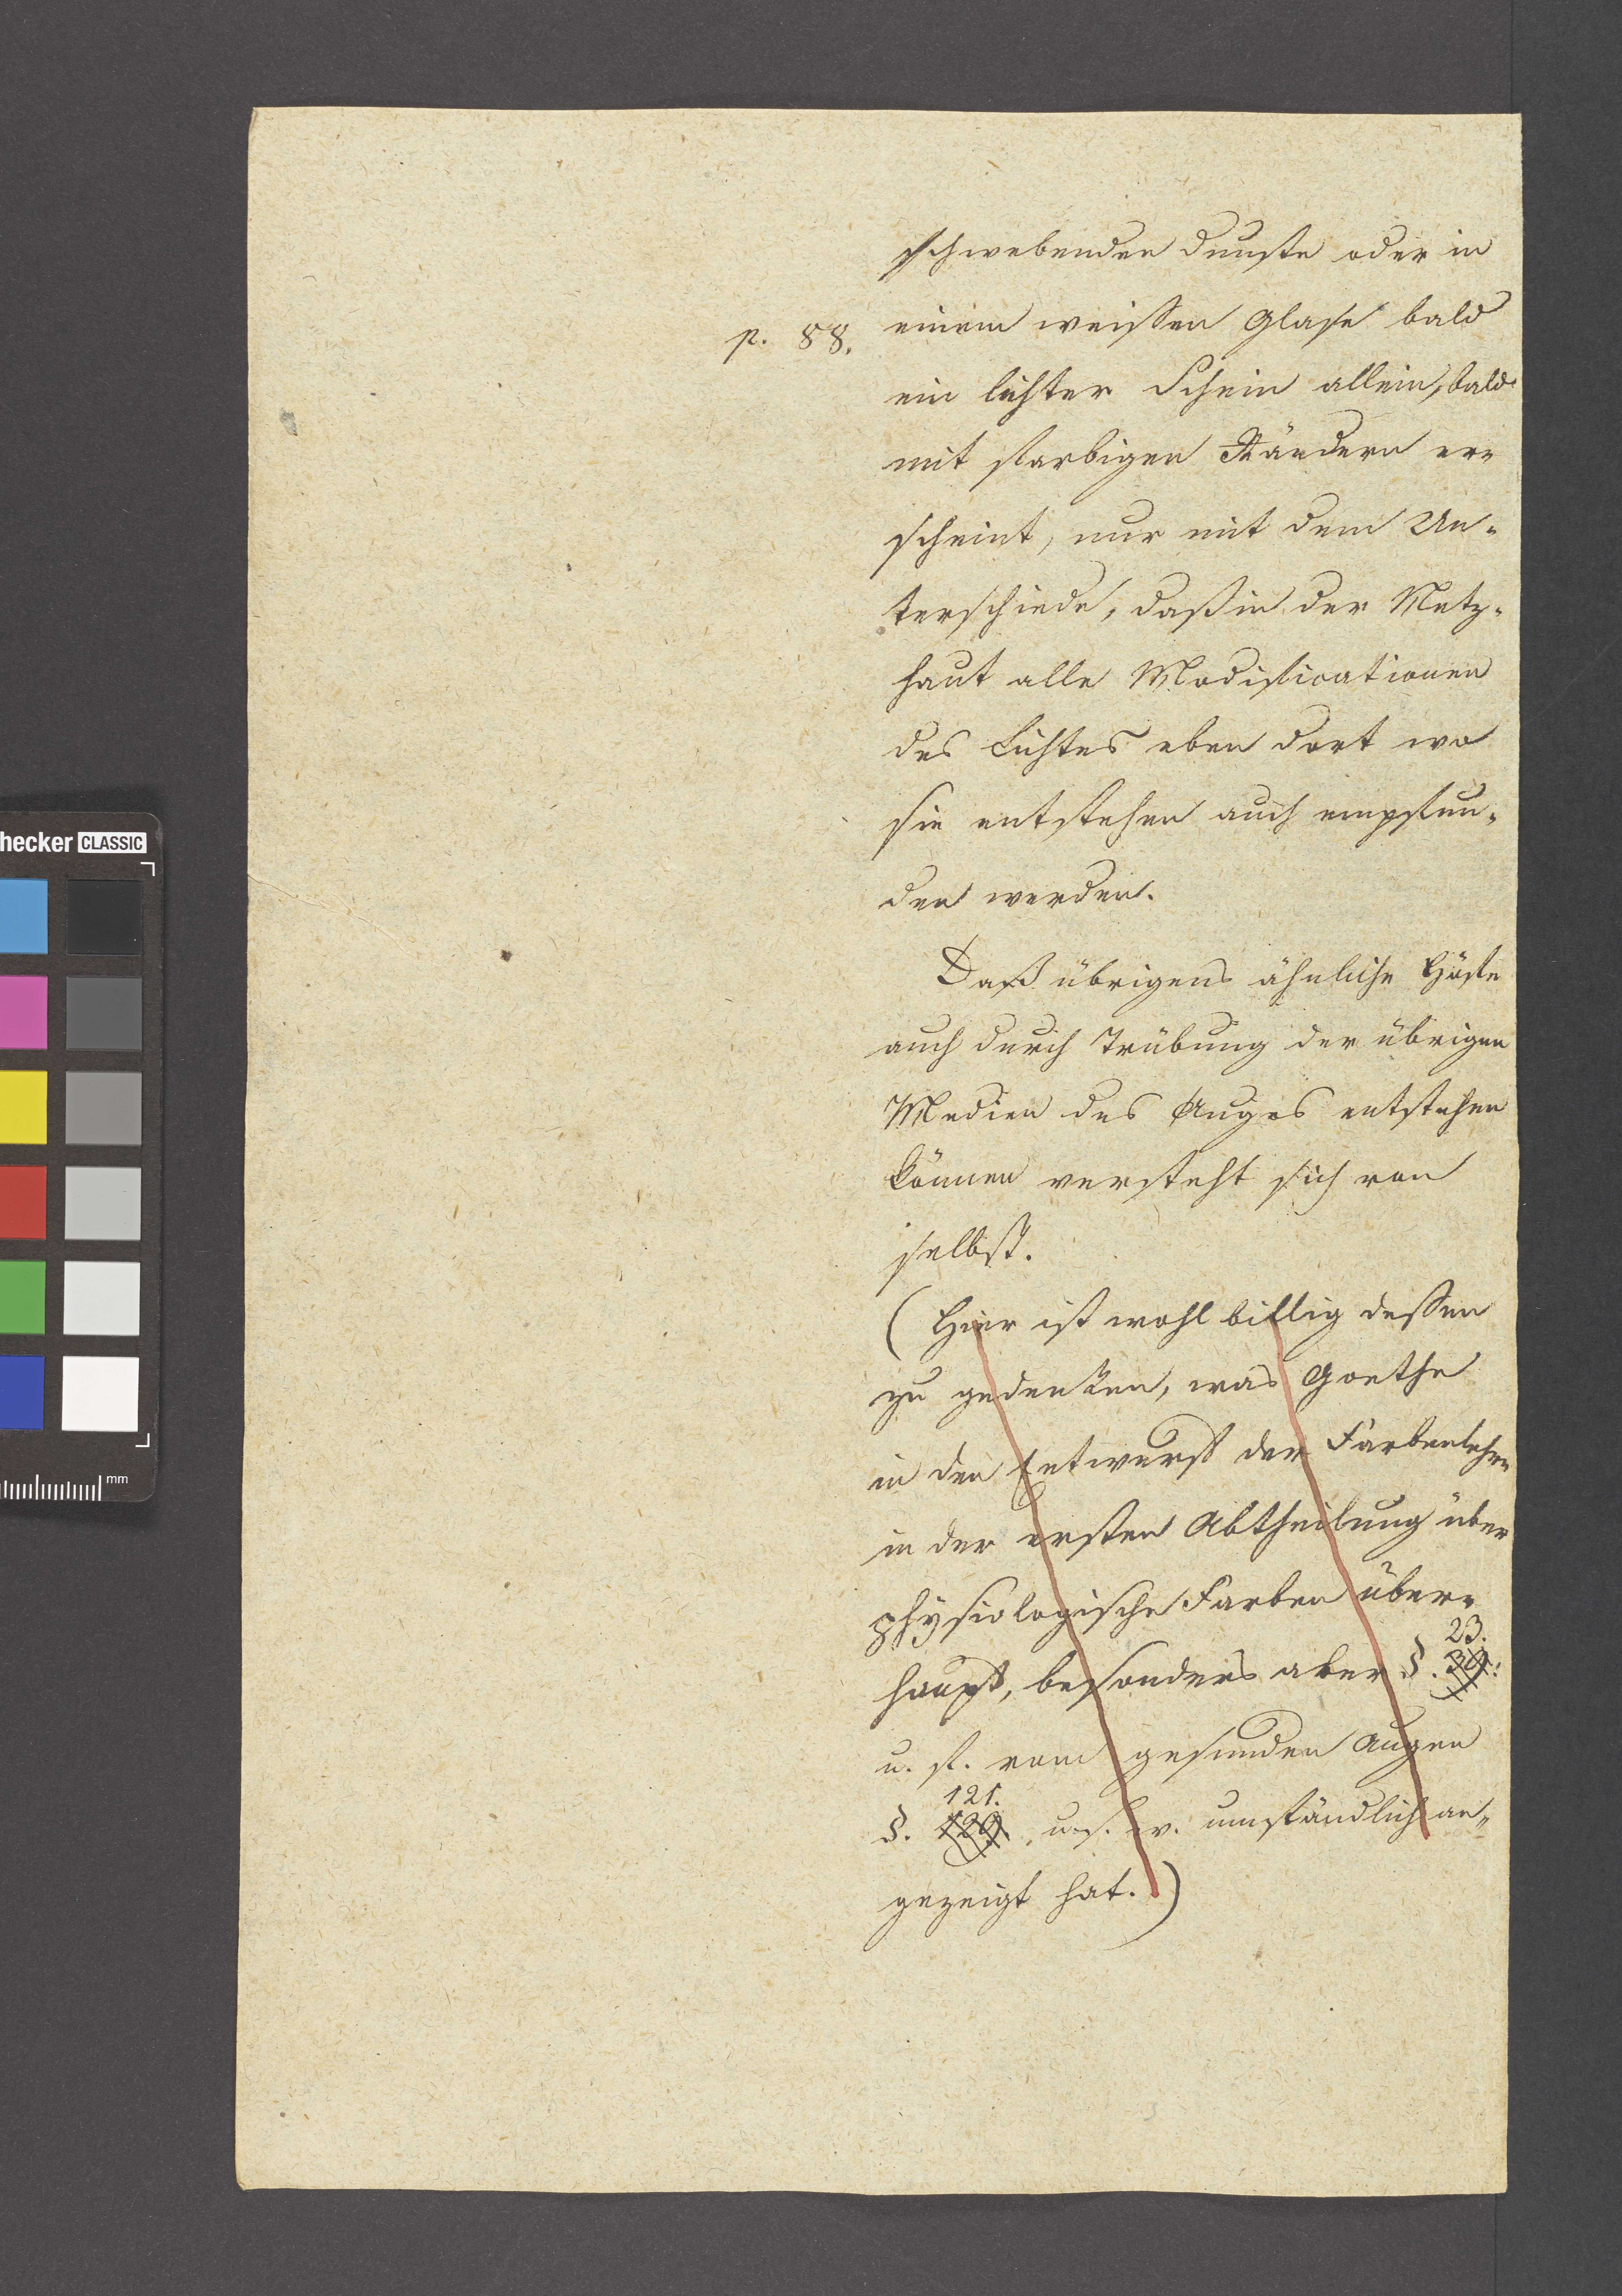 schwebenden Dunste oder in
p. 88. einem weissen Glase bald
ein lichter Schein allein, bald
mit farbigen Rändern er-
scheint, nur mit dem Un-
terschiede, daß in der Netz-
haut alle Modificationen
des Lichtes eben dort wo
sie entstehen auch empfun-
den werden.
Daß übrigens ähnliche Höfe
auch durch Trübung der übrigen
Medien des Auges entstehen
können versteht sich von
selbst.
(Hier ist wohl billig dessen
zu gedenken, was Goethe
in den Entwurf der Farbenlehre
in der ersten Abtheilung über
physiologische Farben über-
23.
haupt, besonders aber §. 30:
u. f. vom gesunden Augen
121.
§. 120. u. s. w. umständlich an-
gezeigt hat.)
hecker CLASSIC
mm